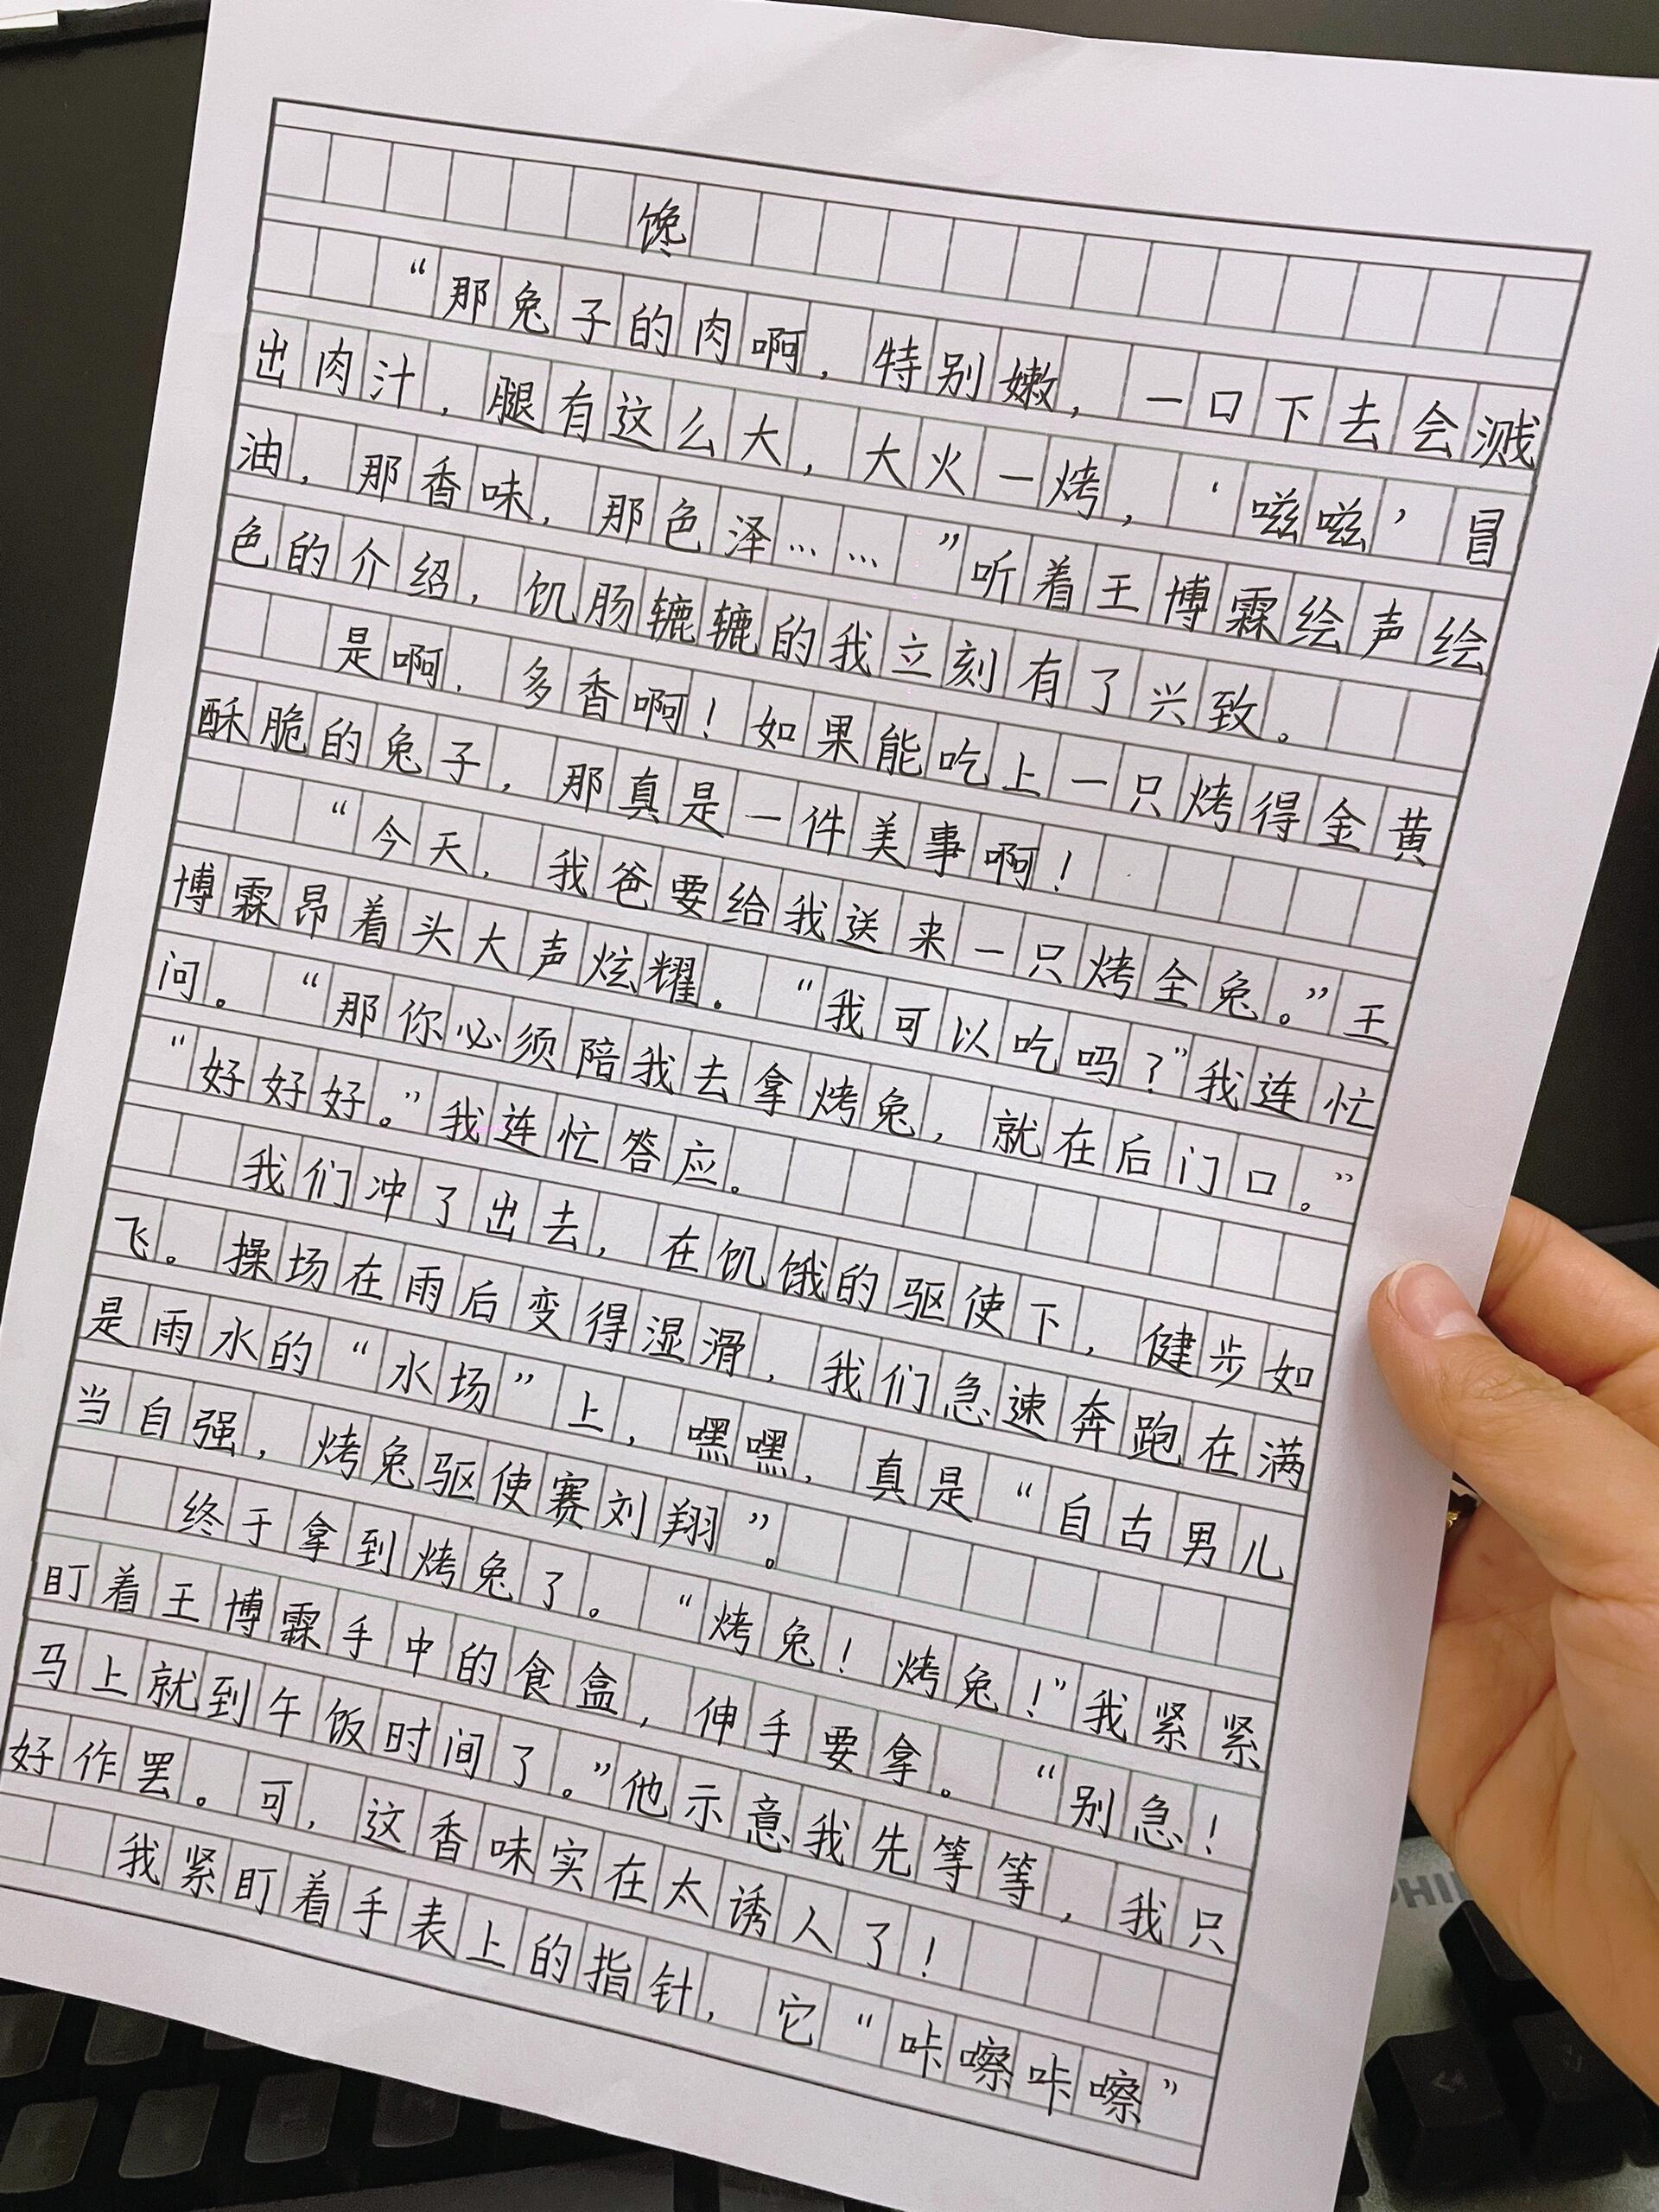 馋
“那兔子的肉啊，特别嫩，一口下去会溅
出肉汁，腿有这么大，大火一烤，‘嗞嗞’冒
油，那香味，那色泽……”听着王博霖绘声绘
色的介绍，饥肠辘辘的我立刻有了兴致。
是啊，多香啊！如果能吃上一只烤得金黄
酥脆的兔子，那真是一件美事啊！
“今天，我爸要给我送来一只烤全兔。”王
博霖昂着头大声炫耀。“我可以吃吗？”我连忙
问。“那你必须陪我去拿烤兔，就在后门口。”
“好好好。”我连忙答应。
我们冲了出去，在饥饿的驱使下，健步如
飞。操场在雨后变得湿滑，我们急速奔跑在满
是雨水的“水场”上，嘿嘿，真是“自古男儿
当自强，烤兔驱使赛刘翔”。
终于拿到烤兔了。“烤兔！烤兔！”我紧紧
盯着王博霖手中的食盒，伸手要拿。“别急！
马上就到午饭时间了。”他示意我先等等，我只
好作罢。可，这香味实在太诱人了！
我紧盯着手表上的指针，它“咔嚓咔嚓”
PHIL